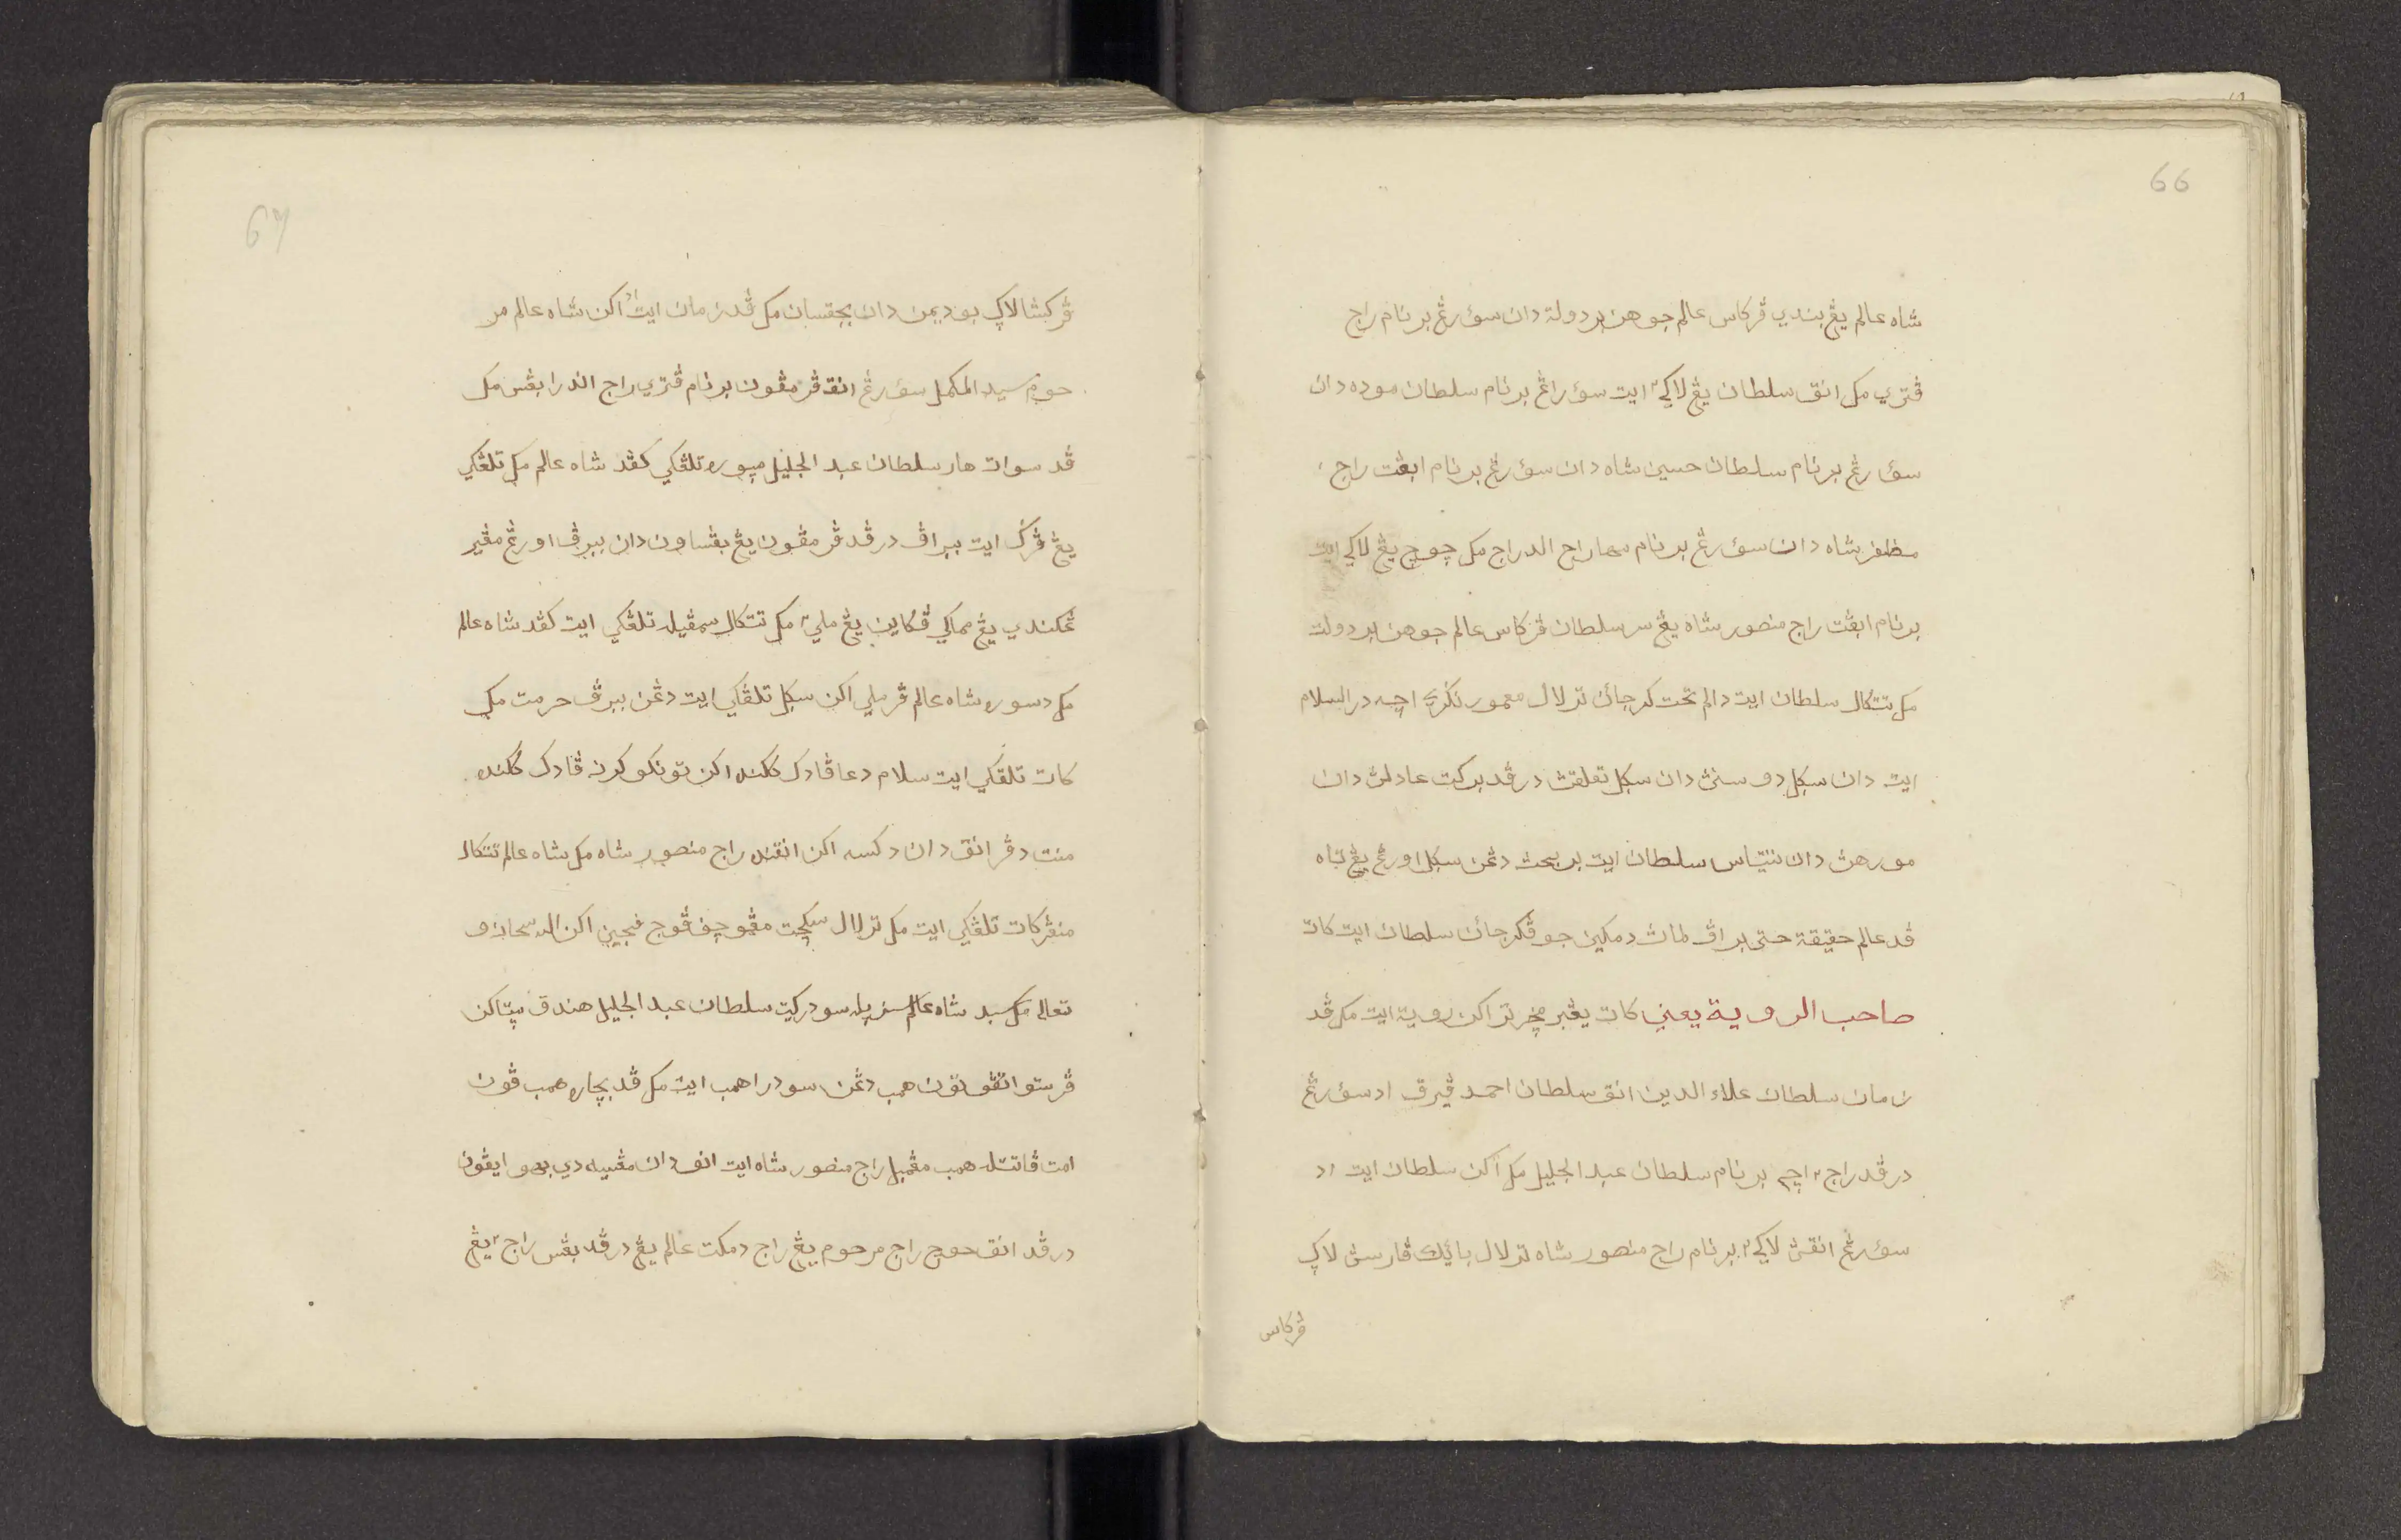 66
شاه عالم يڠ بندي ڤرکاس عالم جوهن بردولة دان سؤرڠ برنام راج
ڤتري مک انق سلطان يڠ لاکي٢ ايت سؤراڠ برنام سلطان موده دان
سؤرڠ برنام سلطان حسين شاه دان سؤرڠ برنام ابڠت راج
مظفر شاه دان سؤرڠ برنام مهاراج الدراج مک چوچ يڠ لاکي ايت
برنام ابڠت راج منصور شاه يڠ سر سلطان ڤرکاس عالم جوهن بردولت
مک تتکال سلطان ايت دالم تخت کرجائن ترلال معمور نکري اچه در السلام
ايت دان سکل دوسنڽ دان سکل تعلقڽ درڤد برکت عادلڽ دان
مورهڽ دان سلطان ايت بربحث دڠن سکل اورڠ يڠ تاه
ڤد عالم حقيقة حتى براڤ لماڽ دمکين جو ڤکرجائن سلطان ايت کات
صاحب الروية يعني کات يڠ امڤو اکن روية ايت مک ڤد
زمان سلطان علاء الدين انق سلطان احمد ڤيرق اد سؤرڠ
درڤد راج٢ اچه برنام سلطان عبد الجليل مک اکن سلطان ايت اد
سؤرڠ انقڽ لاکي٢ برنام راج منصور شاه ترلال بائيک ڤارسڽ لاکي
ڤرکاس
67
ڤرکس لاکي بوديمن دان بڠسان مک ڤد زمان ايت اد اکن شاه عالم مر
حوم سيد المکمل سؤرڠ انق ڤرمڤون برنام ڤتري راج اندرا بڠس مک
ڤد سوات هار سلطان عبد الجليل ميوره تلڠکي کڤد شاه عالم مک تلڠکي
يڠ ڤرک ايت ببراڤ درڤد ڤرمڤون يڠ بڠساون دان ببرڤ اورڠ مڠير
ڠکندي يڠ مماکي ڤکاين يڠ ملي٢ مک تتکال سمڤيله تلڠکي ايت کڤد شاه عالم
مک دسوره شاه عالم ڤرملي اکن سکل تلڠکي ايت دڠن ببرڤ حرمت مک
کات تلڠکي ايت سلام دعا ڤادک ککنده اکن تونکو کرن ڤادک ککنده
منت دڤرانق دان دکسه اکن انقنده راج منصور شاه مک شاه عالم تتکال
منڠر کات تلڠکي ايت مک ترلال سکچت مڠوچڤ ڤوج ڤجين اکن الله سبحانه و
تعالى مک سبد شاه عالم سڤرله سودرکيت سلطان عبد الجليل هندق مپتاکن
ڤرستوانڠون همب دڠن سودرا همب ايت مک ڤد بچار همب ڤون
امت ڤاتتله همب مڠمبل راج منصور شاه ايت انق دان مڠمبيله دي بهوايڤون
درڤد انق چوچ راج مرحوم يڠ راج دمکت عالم يڠ درڤد بڠس راج٢ يڠ